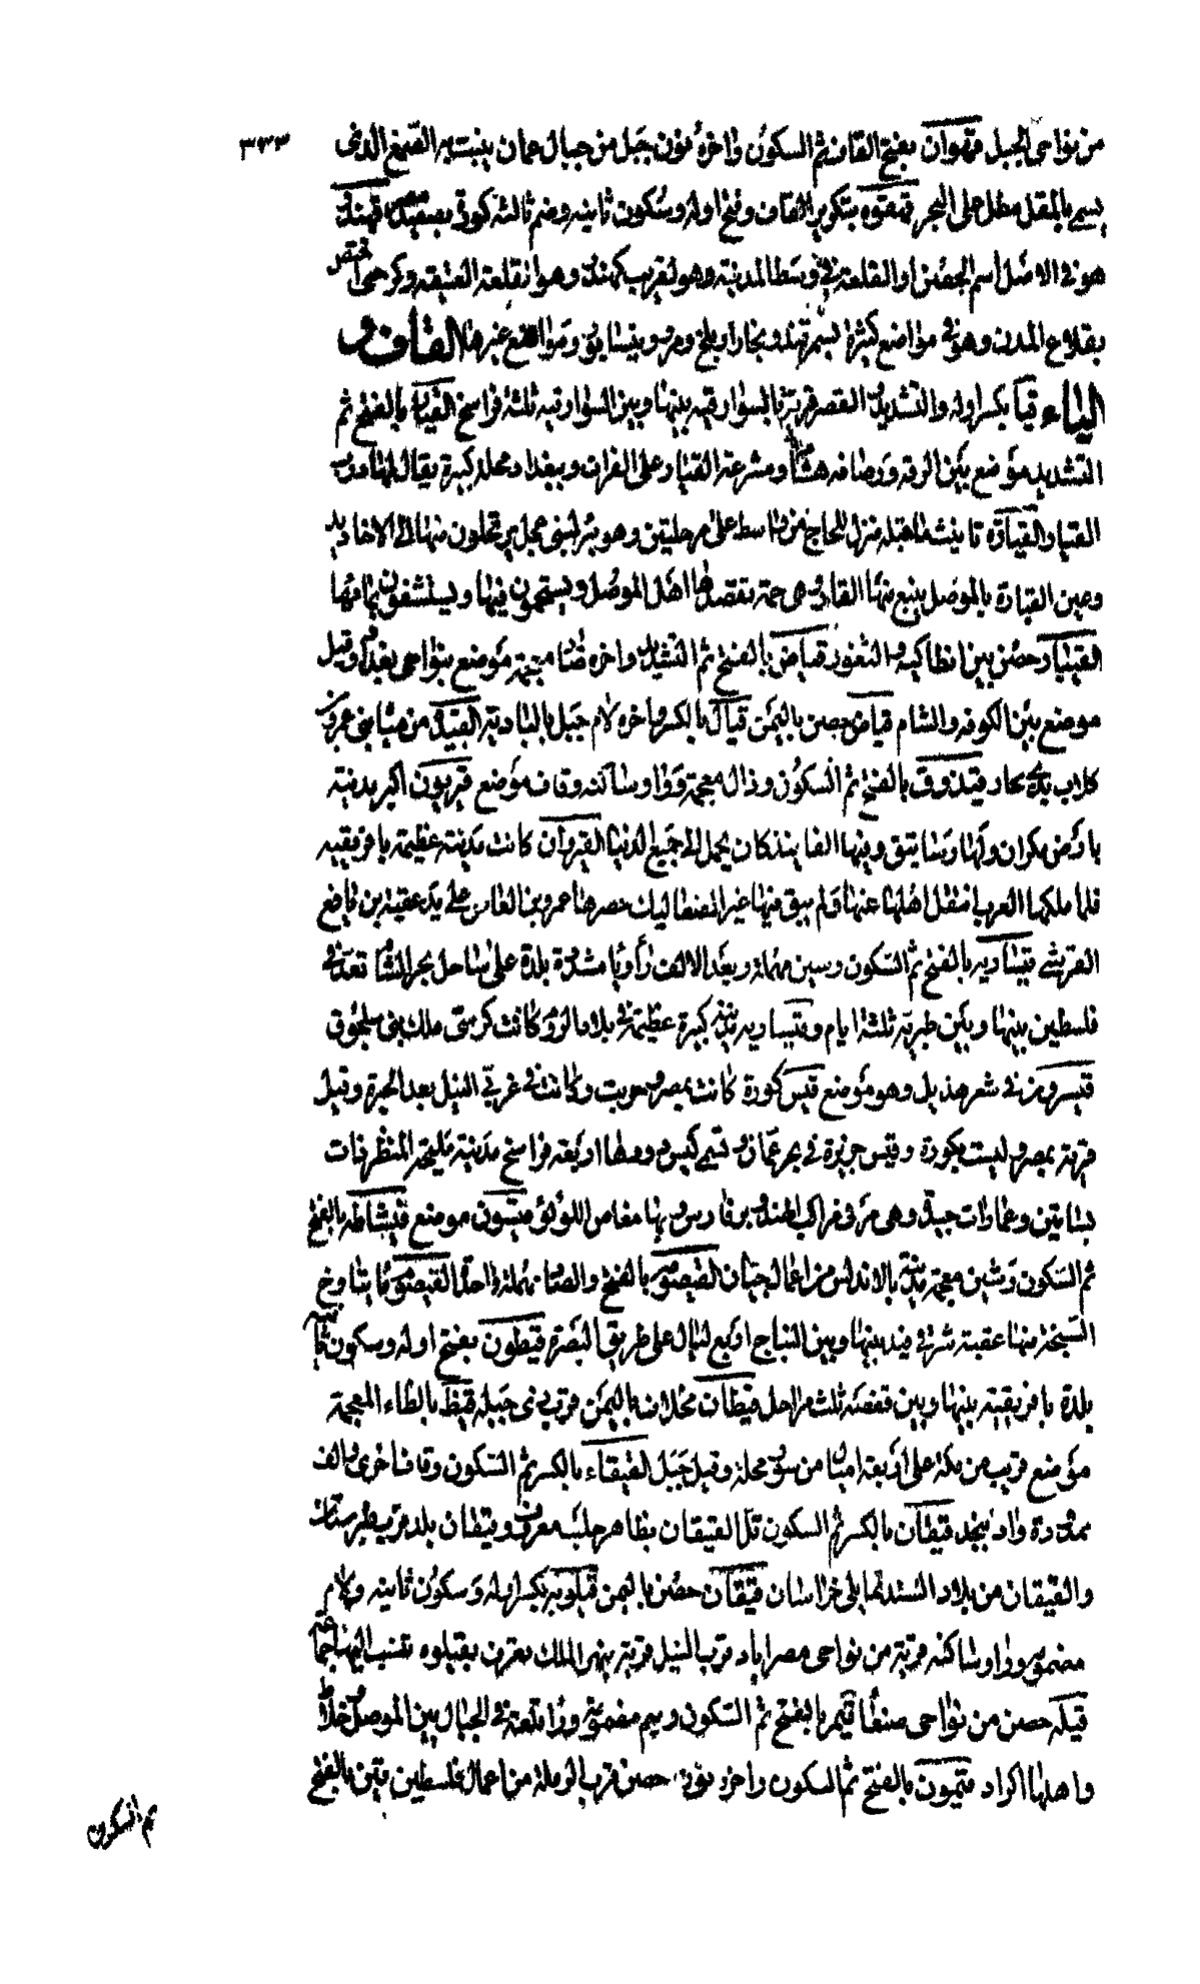 ٣٣٣
من نواحى الجبل قهوان بفتح القاف ثم السكون واخره نون جبل من جبال عمان ينبت به الصمغ الذى
يسمى بالمقل مطل على البحر قهقوه بتكرير القاف وفتح اوله وسكون ثانيه وضم ثالثه كورة بصعيد قهندز
هو فى الاصل اسم الحصن او القلعة فى وسط المدينة وهو تعريب كهندز وهو القلعة العتيقة وكرحى تختص
بقلاع المدن وهو فى مواضع كثيرة بسمرقند وبخارا وبلخ ومرو ونيسابور ومواضع غيرها القاف و
الياء قيا بكسر اوله والتشديد القصر قرية بالسوارقيه بينها وبين السوارقيه ثلثة فراسخ القيار بالفتح ثم
التشديد موضع بين الرقه ورصافه هشام ومشرعة القيار على الفرات وببغداد محله كبيرة يقال لها درب
القيار القيارة تانيث ما قبله منزل للحاج من واسط على مرحلتين وهو بئر لبنى عجل يرتحلون منها الى الاخاديد
وعين القيارة بالموصل ينبع منها القار وهى حمة تقصدها اهل الموصل ويستحمون فيها ويستشفون بمائها
القينيار حصن بين انطاكيه والثغور قياض بالفتح ثم التشديد واخره ضاد معجمة موضع بنواحى بغداد وقيل
موضع بين الكوفه والشام قياض حصن باليمن قيال بالكسر واخره لام جبل بالبادية القيق من مياه بنى عمرو بن
كلاب قيذوق بالفتح ثم السكون وذال معجمة وواو ساكنه وقاف موضع قيربون اكبر مدينة
بارض مكران ولها رساتيق وفيها الفانيذ كان يحمل الى جميع الدنيا القيروان كانت مدينة عظيمة بافريقيه
فلما ملكها العرب انتقل اهلها عنها ولم يبق فيها غير الصعاليك مصرها عمرو بن العاص على يد عقبة بن نافع
القرشى قيساريه بالفتح ثم السكون وسين مهملة وبعد الالف راء ويا مشددة بلدة على ساحل بحر الشام تعد فى
فلسطين بينها وبين طبريه ثلثة ايام وقيساريه مدينة كبيرة عظيمة فى بلاد الروم كانت كرسى ملك بنى سلجوق
قيسرون فى شعر هذيل وهو موضع قيس كورة كانت بمصر وخربت وكانت فى غربى النيل بعد الجيزة وقيل
قرية بمصر وليست بكورة وقيس جزيرة فى بحر عمان وتسمى كيس دورها اربعة فراسخ مدينة مليحة المنظر ذات
بساتين وعمارات جيدة وهى مرفى مراكب الهند وبر فارس وبها مغاص اللؤلؤ قيسون موضع قيشاطه بالفتح
ثم السكون وشين معجمة مدينة بالاندلس من اعمال جيان القيصومه بالفتح والصاد مهملة واحدة القيصوم ما يناوح
الشيحة بينها عقبة شرقى فيد بينها وبين النباج اربع ليال على طريق البصرة قيطون بفتح اوله وسكون ثانيه
بلدة بافريقيه بينها وبين قفصه ثلث مراحل قيظان مخلاف باليمن قرب ذى جبله قيظ بالظاء المعجمة
موضع قريب من مكة على اربعة اميال من سوق نخلة وقيل جبل القيقاء بالكسر ثم السكون وقاف اخرى والف
ممدودة واد بنجد قيقان بالكسر ثم السكون تل القيقان بظاهر حلب معروف وقيقان بلد قرب طبرستان
والقيقان من بلاد السند مما يلى خراسان قيقان حصن باليمن قيلويه بكسر اوله وسكون ثانيه ولام
مضمومه وواو ساكنه قرية من نواحى مصراباد قرب النيل قرية بنهر الملك تعرف بقيلوه تنسب اليها جماعة
قيله حصن من نواحى صنعا قيمر بالفتح ثم السكون وميم مضمومة وراء قلعة فى الجبال بين الموصل وخلاط
واهلها اكراد قيمون بالفتح ثم السكون واخره نون حصن قرب الرملة من اعمال فلسطين قين بالفتح
ثم السكون